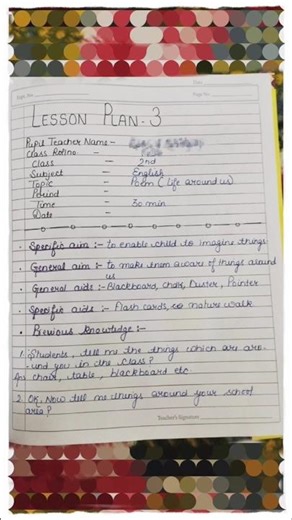 Date
Page No.
LESSON PLAN-3
Pupil Teacher Name -
Class Rollno -
Class - 2nd
Subject - English
Topic - Poem (life around us)
Period -
Time - 30 min
Date -
• Specific aim :- to enable child to imagine things
• General aim :- to make them aware of things around
us
• General aids :- Blackboard, chalk, Duster, Pointer
• Specific aids :- Flash cards, nature walk
• Previous knowledge :-
1. Students, tell me the things which are aro-
und you in the class?
Ans chair, table, blackboard etc.
2. OK. Now tell me things around your school
area?
Teacher's Signature